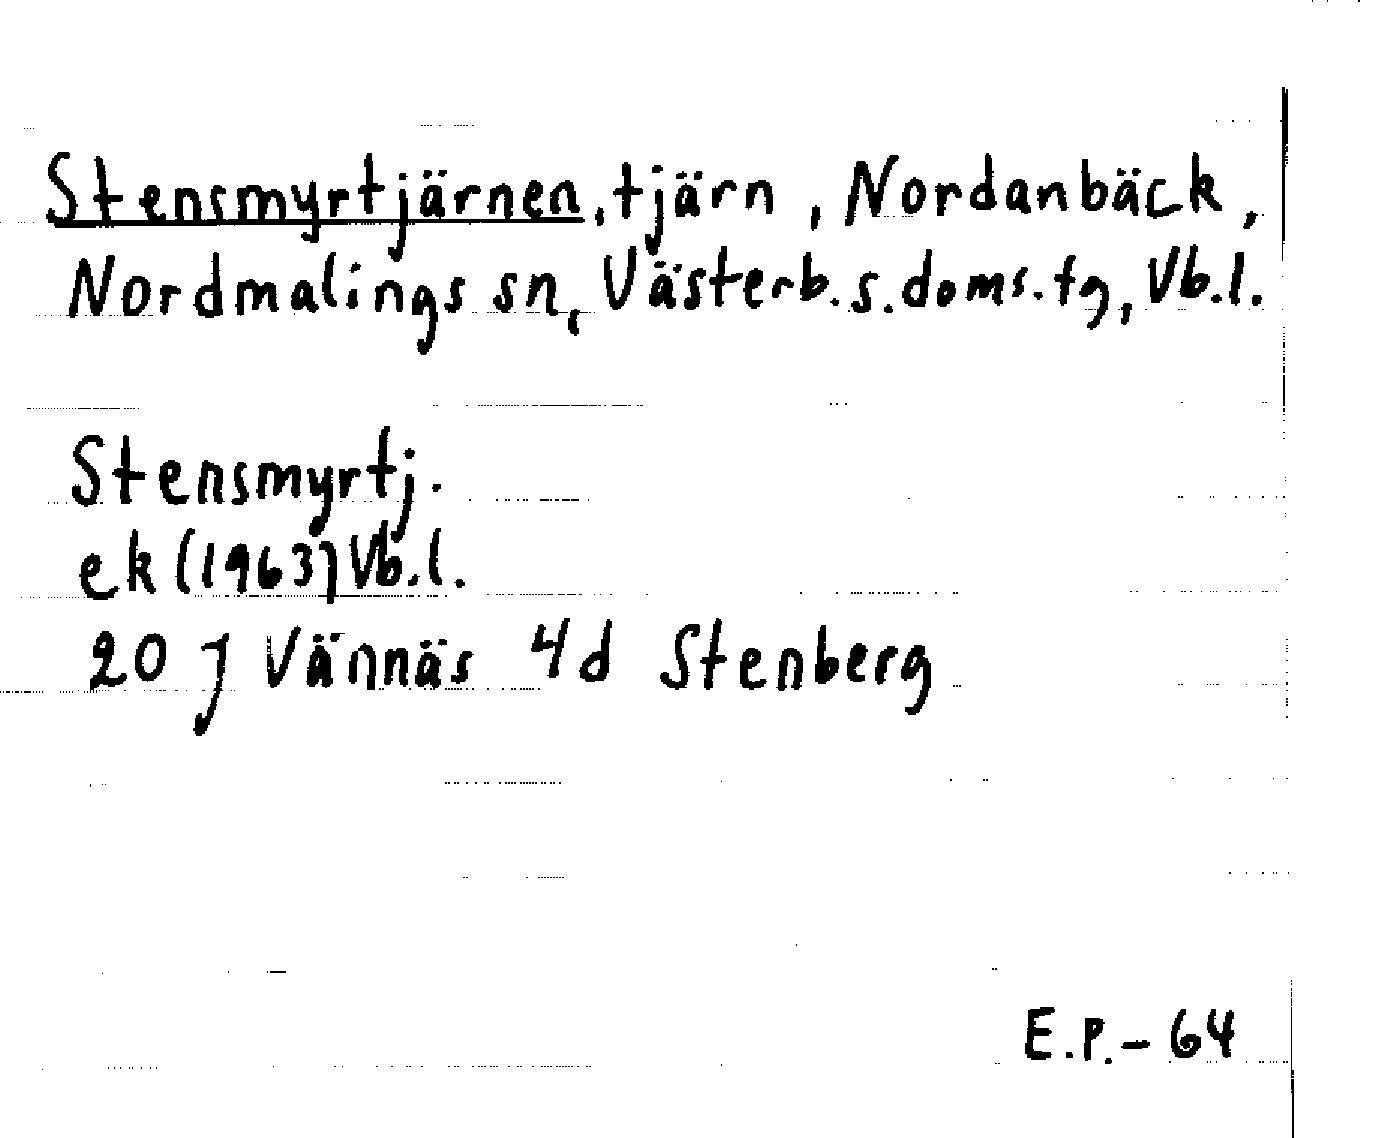 Stensmyrtjärnen, tjärn, Nordanbäck,
Nordmalings sn, Västerb. s. doms. tg, Vb.l.
Stensmyrtj.
ek (1963) Vb.l.
20 J Vännäs 4d Stenberg
E.P. - 64